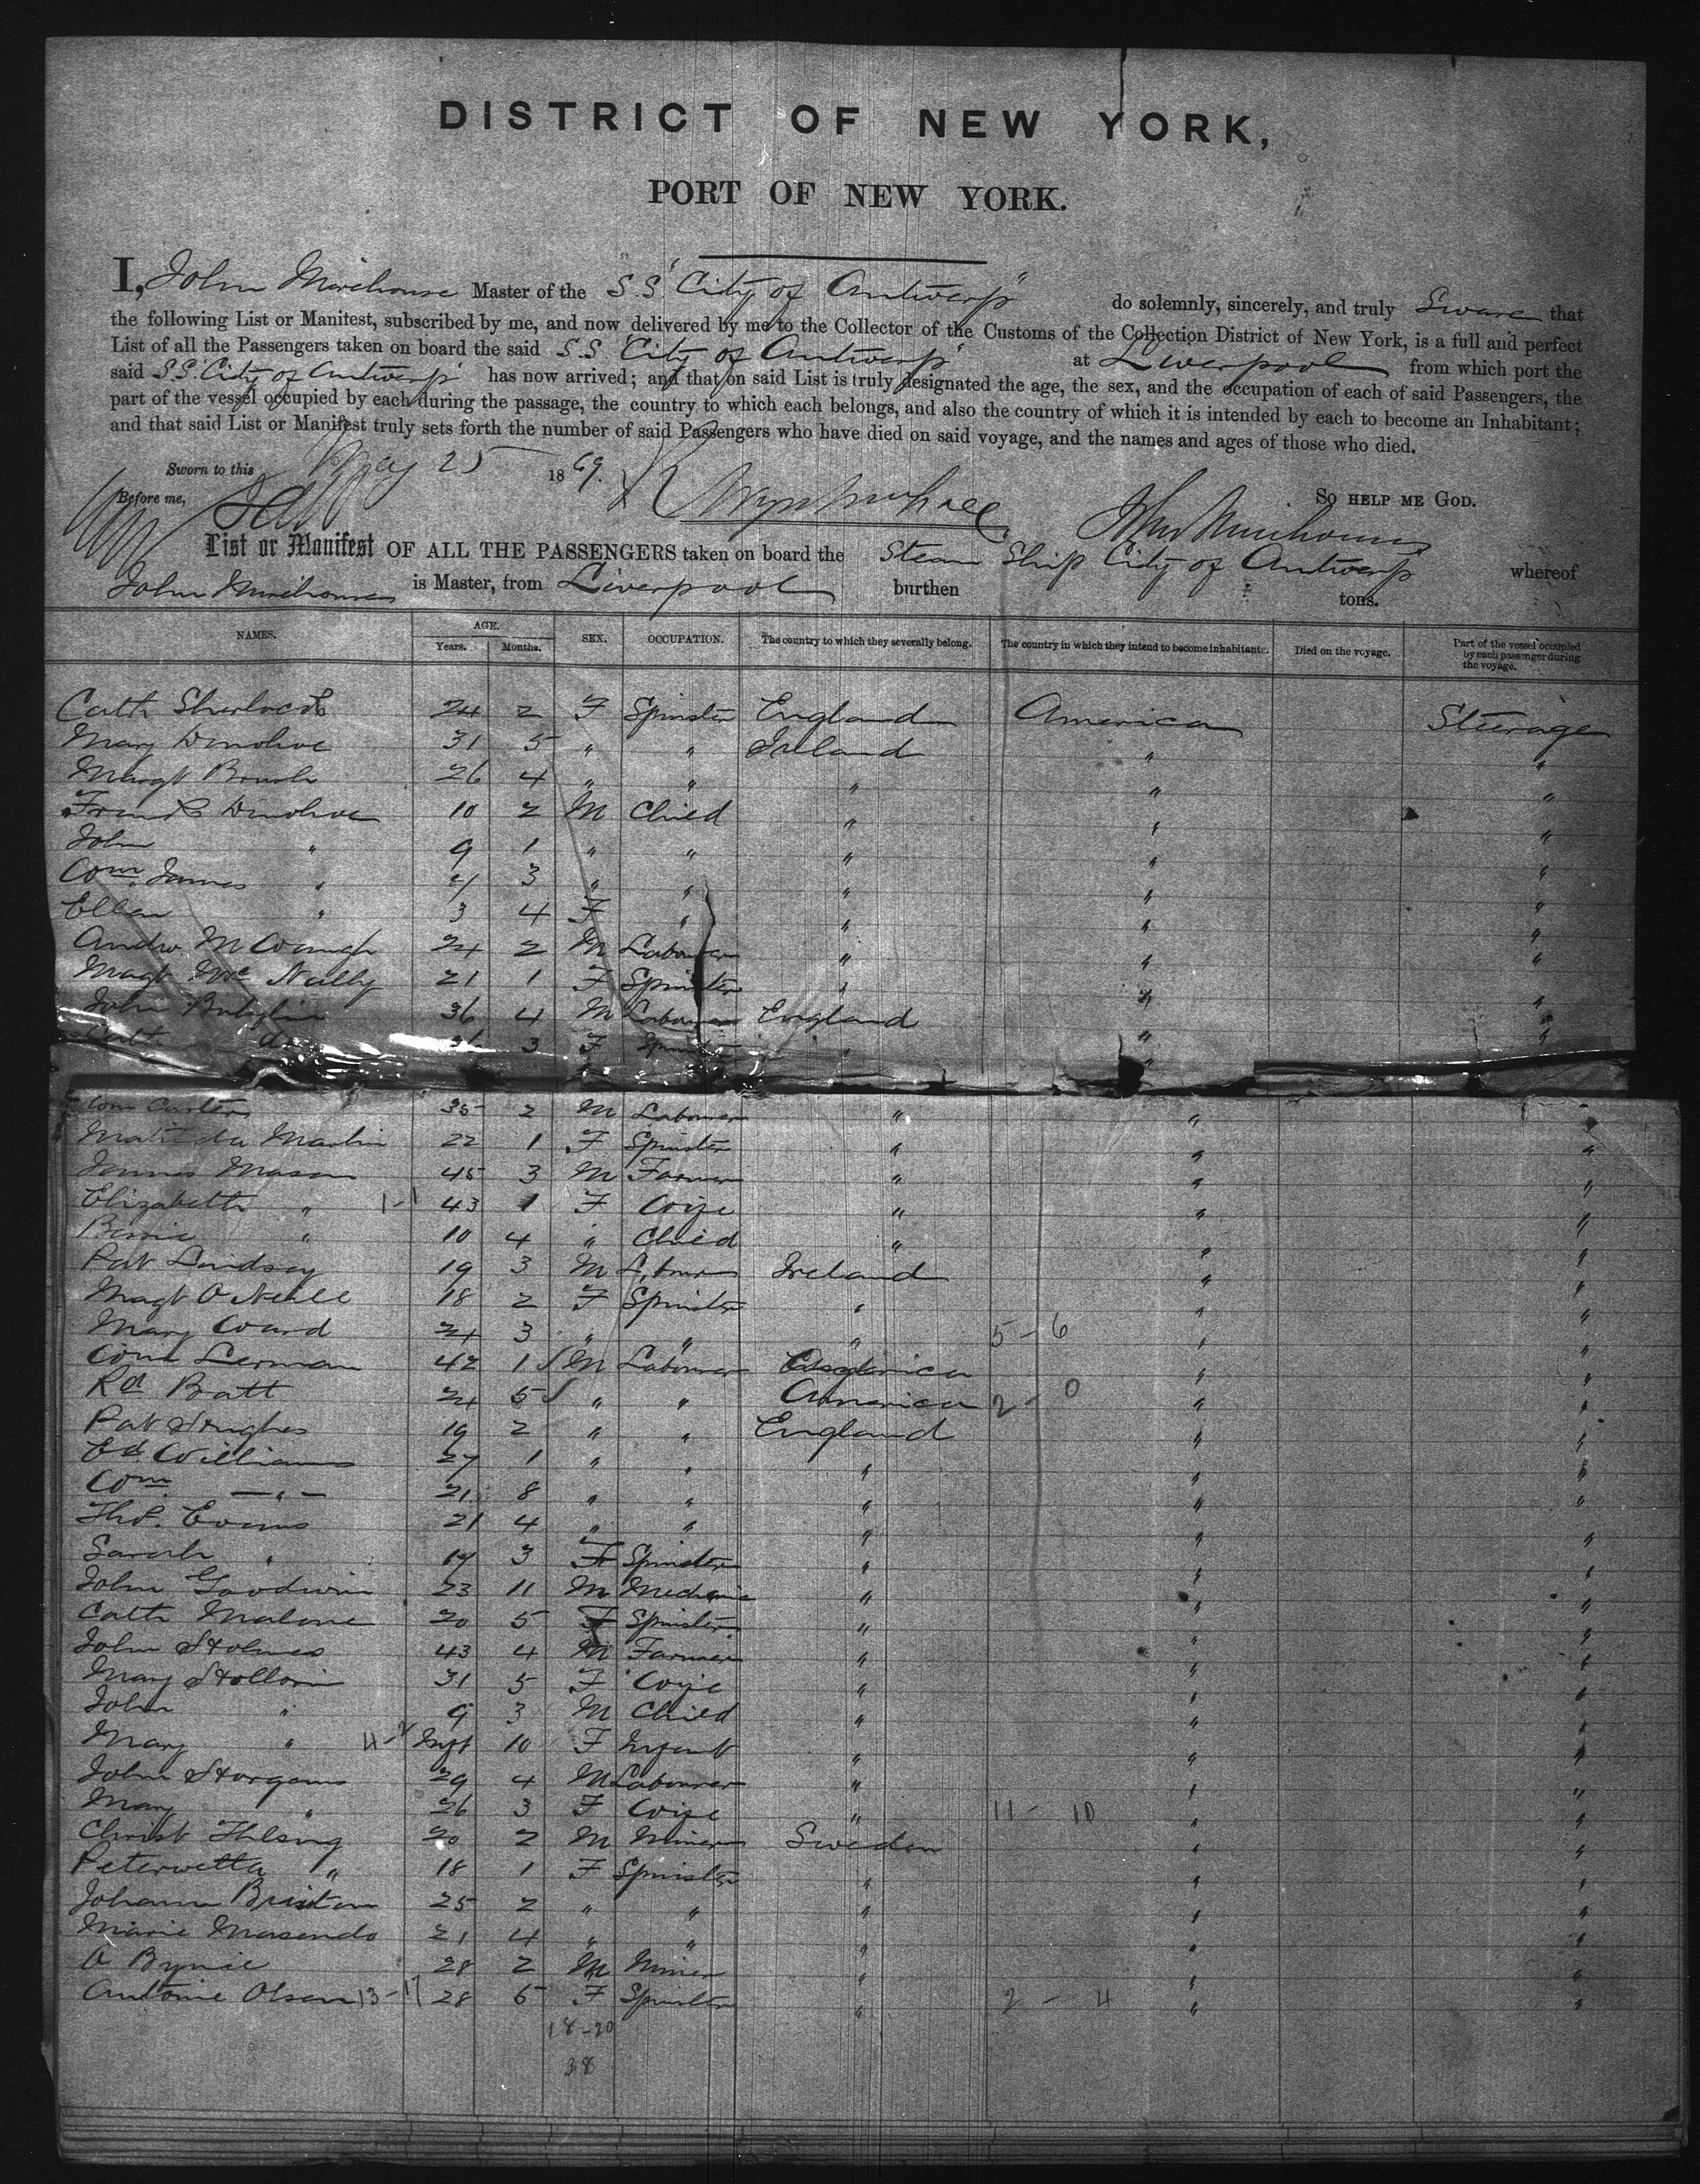 DISTRICT OF NEW YORK,
PORT OF NEW YORK.
I, John Mirehouse Master of the S.S. "City of Antwerp" do solemnly, sincerely, and truly Sware that
the following List or Manifest, subscribed by me, and now delivered by me to the Collector of the Customs of the Collection District of New York, is a full and perfect
List of all the Passengers taken on board the said S.S. "City of Antwerp" at Liverpool from which port the
said S.S. "City of Antwerp" has now arrived; and that on said List is truly designated the age, the sex, and the occupation of each of said Passengers, the
part of the vessel occupied by each during the passage, the country to which each belongs, and also the country of which it is intended by each to become an Inhabitant;
and that said List or Manifest truly sets forth the number of said Passengers who have died on said voyage, and the names and ages of those who died.
Sworn to this May 25 1869.
Before me, So HELP ME GOD.
John Mirehouse
List or Manifest OF ALL THE PASSENGERS taken on board the Steam Ship City of Antwerp whereof
John Mirehouse is Master, from Liverpool burthen tons.
NAMES. AGE. Years. Months. SEX. OCCUPATION. The country to which they severally belong. The country in which they intend to become inhabitants. Died on the voyage. Part of the vessel occupied by each passenger during the voyage.
Cath Sherlock 24 2 F Spinster England America Steerage
Mary Donohoe 31 5 " " Ireland " "
Margt 26 4 " " " " "
Frank Donohoe 10 2 M Child " " "
John " 9 1 " " " " "
Wm James " 4 3 " " " " "
Ellen " 3 4 F " " " "
Andw 24 2 M Labourer " " "
Magt Mc Nally 21 1 F Spinster " " "
John 36 4 M Labourer England " "
Cath do 3 F Spinster " " "
Wm Carter 35 2 M Labourer " " "
Matilda Martin 22 1 F Spinster " " "
James Mason 45 3 M Farmer " " "
Elizabeth " 1-1 43 1 F Wife " " "
" 10 4 " Child " " "
Pat Lindsay 19 3 M Labourer Ireland " "
Magt O Neill 18 2 F Spinster " " "
Mary Ward 24 3 " " " 5-6 " "
Wm Lerman 42 1 M Labourer America " "
Rd Batt 24 5 " " America 2-0 " "
Pat Hughes 19 2 " " England " "
Ed Williams 27 1 " " " " "
Wm —"— 21 8 " " " " "
Thos. Evans 21 4 " " " " "
Sarah " 17 3 F Spinster " " "
John Goodwin 23 11 M Mechanic " " "
Cath Malone 20 5 F Spinster " " "
John Holmes 43 4 M Farmer " " "
Mary 31 5 F Wife " " "
John " 9 3 M Child " " "
Mary " 4-2 Inft 10 F Infant " " "
John 29 4 M Labourer " " "
Mary " 26 3 F Wife " 11-10 " "
Christ 20 2 M Miner Sweden " "
" 18 1 F Spinster " " "
Johann 25 2 " " " " "
Marie 21 4 " " " " "
28 2 M Miner " " "
Antonie Olsen 13-17 28 5 F Spinster " 2-4 " "
18-20
38